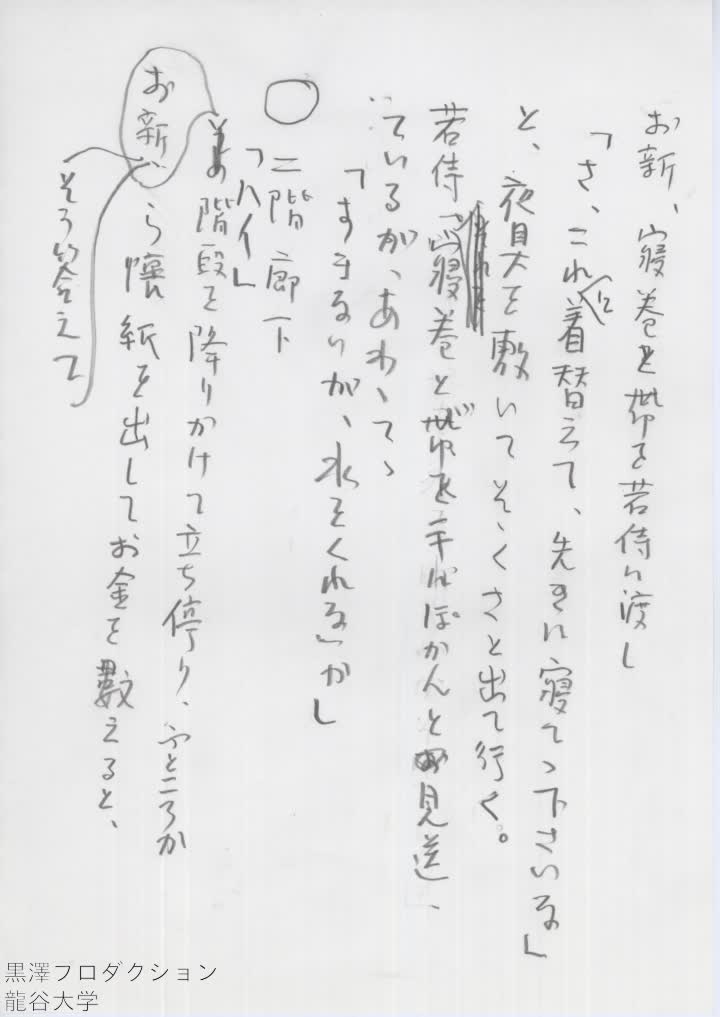 お新、寝巻と帯を若侍に渡し
「さ、これに着替えて、先きに寝てゝ下さいな」
と、夜具を敷いてそゝくさと出て行く。
若侍、寝巻と帯を手にぽかんと見送っ
ているが、あわてゝ
「すまないが、水をくれないか」
「ハイ」
○ 二階廊下
お新、階段を降りかけて立ち停り、ふところか
ら懐紙を出してお金を数えると、
そろへて
黒澤プロダクション
龍谷大学